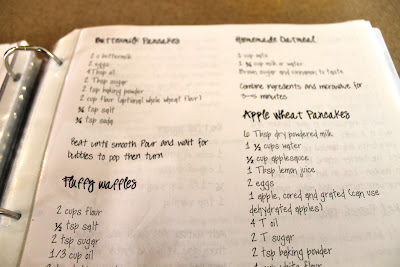 Buttermilk Pancakes
2 c buttermilk
2 eggs
4 Tbsp oil
2 Tbsp sugar
2 tsp baking powder
2 cup flour (optional whole wheat flour)
½ tsp salt
½ tsp soda
Beat until smooth Pour and wait for
bubbles to pop then turn
Fluffy waffles
2 cups flour
½ tsp salt
2 tsp sugar
1/3 cup oil
Homemade Oatmeal
1 cup oats
1 ¾ cup milk or water
Brown sugar and cinnamon to taste
Combine ingredients and microwave for
3-5 minutes
Apple Wheat Pancakes
6 Tbsp dry powdered milk
1 ½ cups water
½ cup applesauce
1 Tbsp lemon juice
2 eggs
1 apple, cored and grated (can use
dehydrated apples)
4 T oil
2 T sugar
2 tsp baking powder
cup white flour